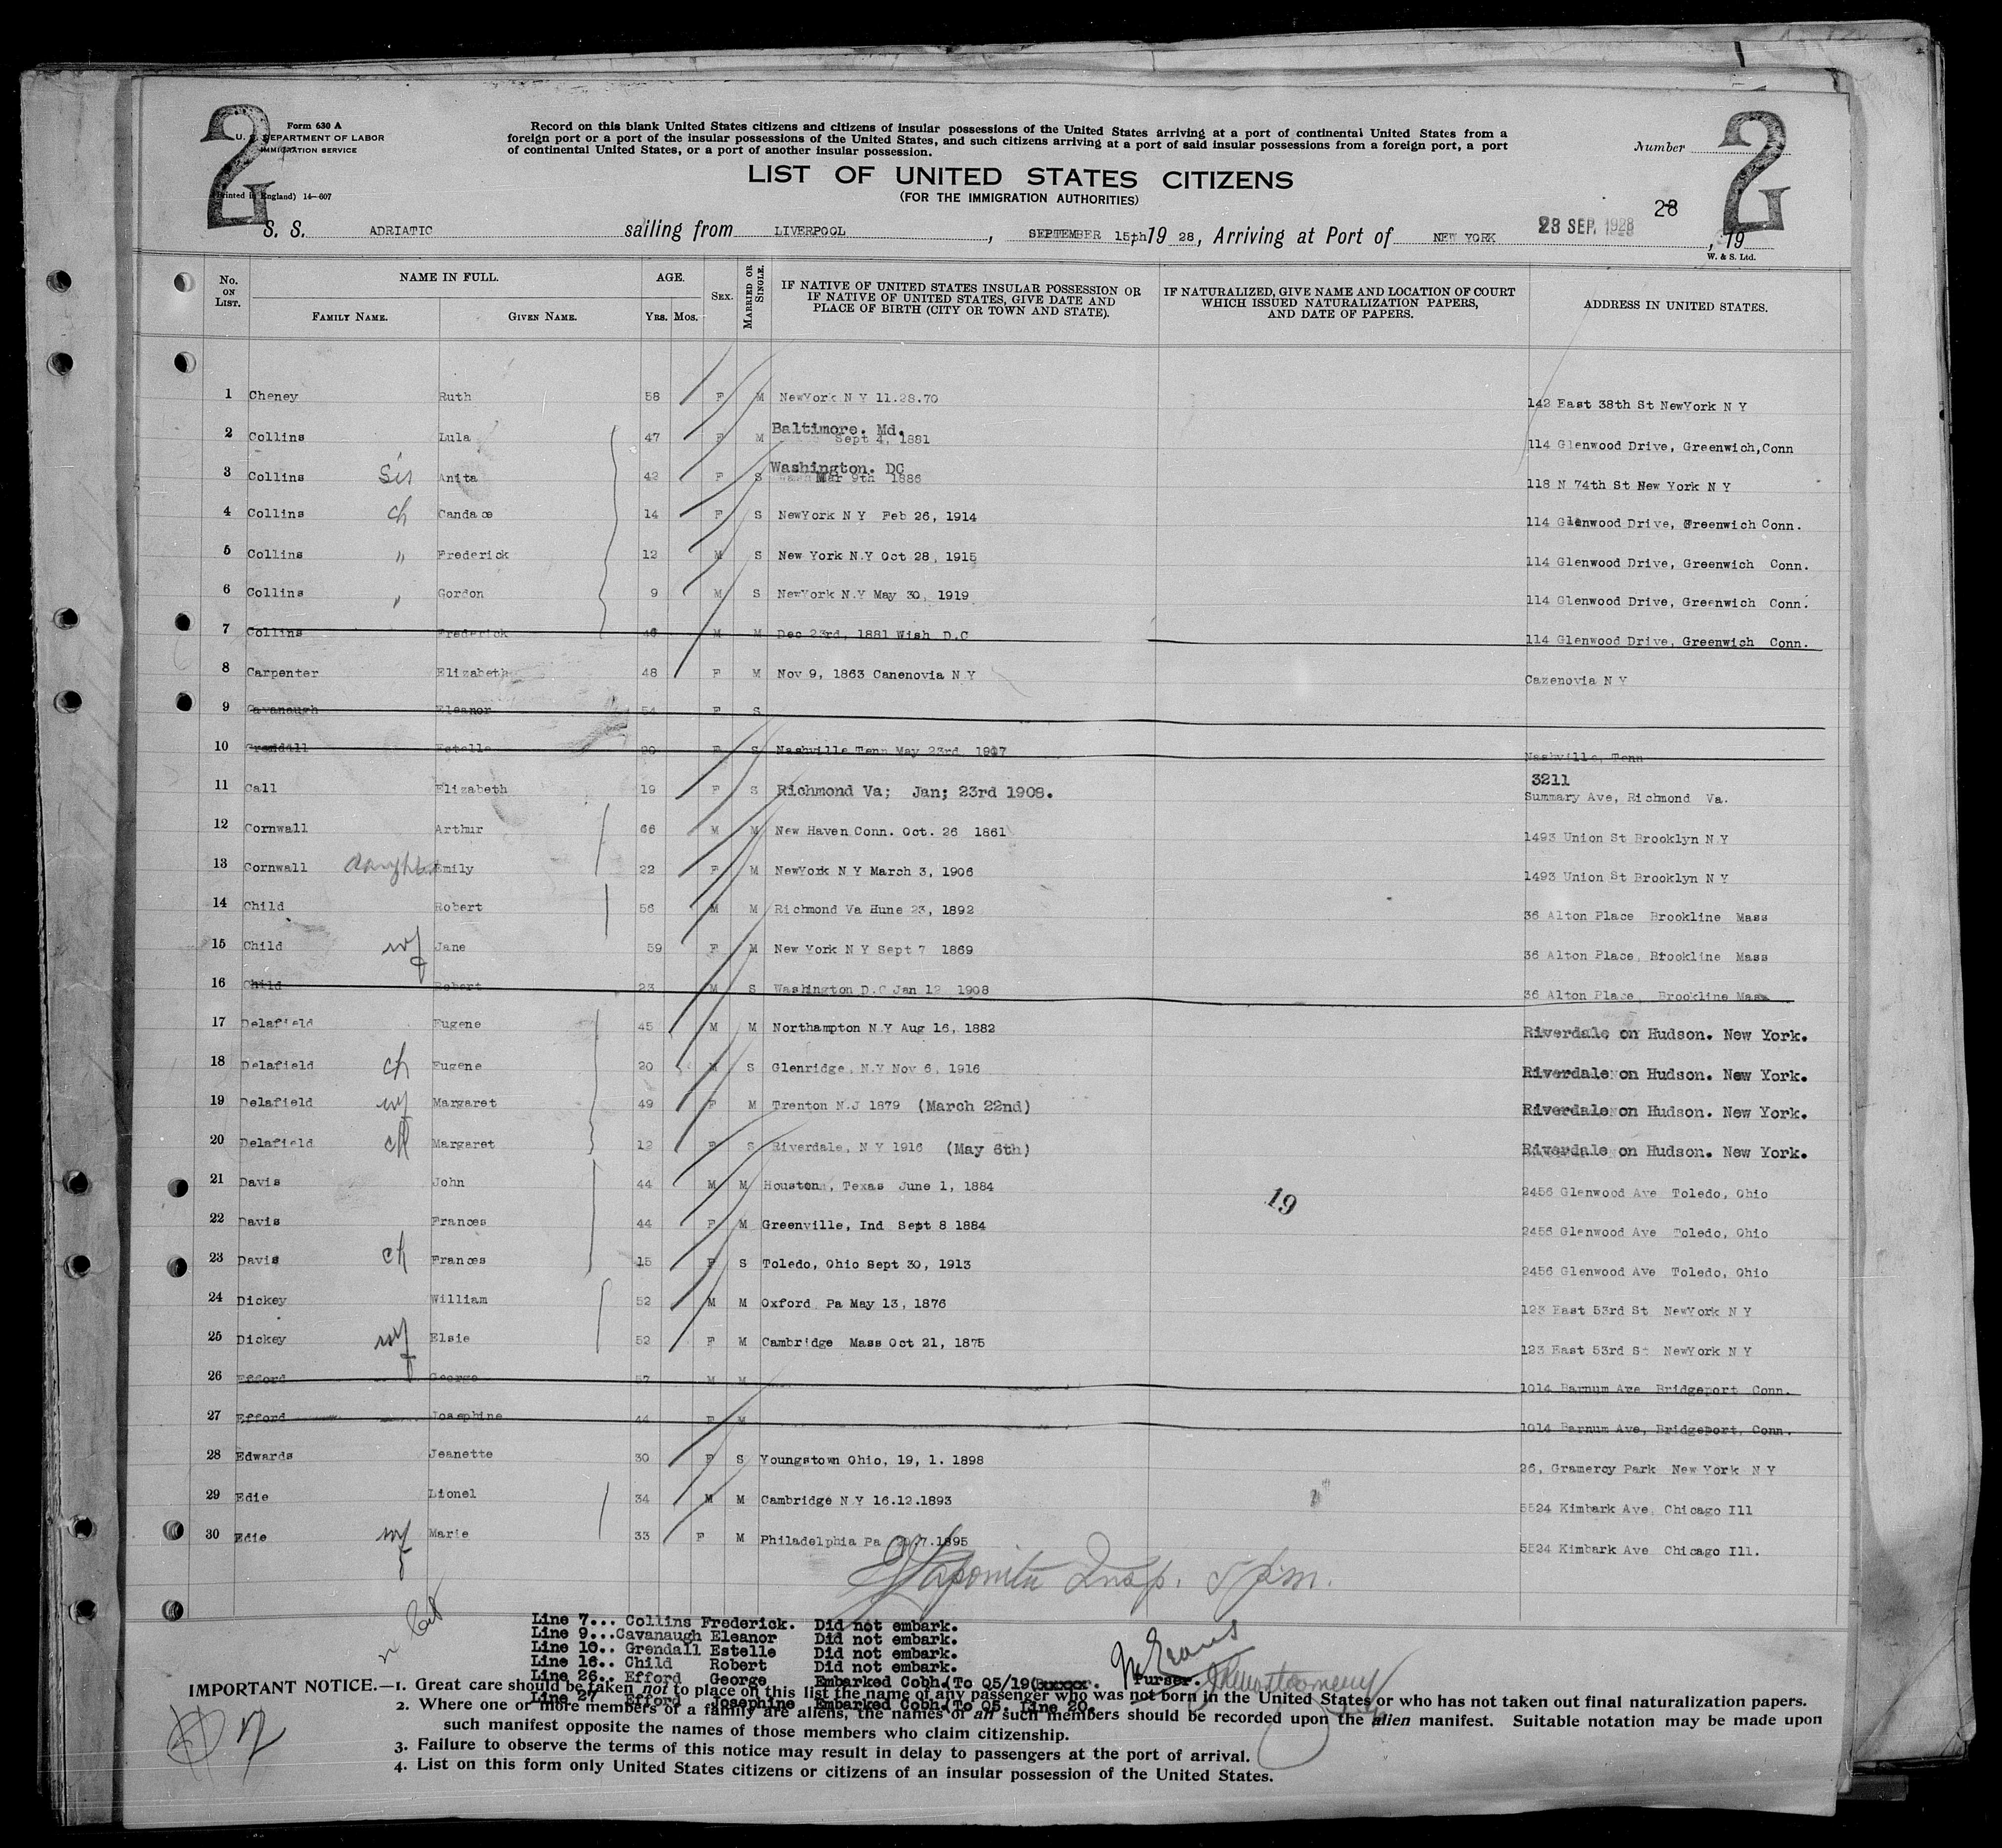 2 2
Form 630 A
U. S. DEPARTMENT OF LABOR
IMMIGRATION SERVICE
(Printed in England) 14—607
Record on this blank United States citizens and citizens of insular possessions of the United States arriving at a port of continental United States from a
foreign port or a port of the insular possessions of the United States, and such citizens arriving at a port of said insular possessions from a foreign port, a port
of continental United States, or a port of another insular possession.
Number
LIST OF UNITED STATES CITIZENS
(FOR THE IMMIGRATION AUTHORITIES)
28
S. S. ADRIATIC sailing from LIVERPOOL, SEPTEMBER 15th 19 28, Arriving at Port of NEW YORK 23 SEP. 1928, 19
W. & S. Ltd.
No. ON LIST. NAME IN FULL. FAMILY NAME. GIVEN NAME. AGE. YRS. MOS. SEX. MARRIED OR SINGLE. IF NATIVE OF UNITED STATES INSULAR POSSESSION OR IF NATIVE OF UNITED STATES, GIVE DATE AND PLACE OF BIRTH (CITY OR TOWN AND STATE). IF NATURALIZED, GIVE NAME AND LOCATION OF COURT WHICH ISSUED NATURALIZATION PAPERS, AND DATE OF PAPERS. ADDRESS IN UNITED STATES.
1 Cheney Ruth 58 F M NewYork N Y 11.28.70 142 East 38th St NewYork N Y
2 Collins Lula 47 F M Baltimore. Md. Sept 4, 1881 114 Glenwood Drive, Greenwich,Conn
3 Collins Sis Anita 42 F S Washington. DC Mar 9th 1886 118 N 74th St New York N Y
4 Collins ch Candace 14 F S NewYork N Y Feb 26, 1914 114 Glenwood Drive, Greenwich Conn.
5 Collins " Frederick 12 M S New York N.Y Oct 28, 1915 114 Glenwood Drive, Greenwich Conn.
6 Collins " Gordon 9 M S NewYork N.Y May 30, 1919 114 Glenwood Drive, Greenwich Conn.
7 Collins Frederick 46 M M Dec 23rd, 1881 Wish D.C 114 Glenwood Drive, Greenwich Conn.
8 Carpenter Elizabeth 48 F M Nov 9, 1863 Canenovia N Y Cazenovia N Y
9 Cavanaugh Eleanor 54 F S
10 Grendall Estelle 20 F S Nashville Tenn May 23rd, 1907 Nashville, Tenn
11 Call Elizabeth 19 F S Richmond Va; Jan; 23rd 1908. 3211 Summary Ave, Richmond Va.
12 Cornwall Arthur 66 M M New Haven Conn. Oct. 26 1861 1493 Union St Brooklyn N Y
13 Cornwall daughter Emily 22 F M NewYork N Y March 3, 1906 1493 Union St Brooklyn N Y
14 Child Robert 56 M M Richmond Va Hune 23, 1892 36 Alton Place Brookline Mass
15 Child wf Jane 59 F M New York N Y Sept 7 1869 36 Alton Place, Brookline Mass
16 Child Robert 23 M S Washington D.C Jan 12 1908 36 Alton Place, Brookline Mass
17 Delafield Eugene 45 M M Northampton N.Y Aug 16, 1882 Riverdale on Hudson. New York.
18 Delafield ch Eugene 20 M S Glenridge, N.Y Nov 6, 1916 Riverdale on Hudson. New York.
19 Delafield wf Margaret 49 F M Trenton N.J 1879 (March 22nd) Riverdale on Hudson. New York.
20 Delafield ch Margaret 12 F S Riverdale, N Y 1916 (May 6th) Riverdale on Hudson. New York.
21 Davis John 44 M M Houston, Texas June 1, 1884 2456 Glenwood Ave Toledo, Ohio
19
22 Davis Frances 44 F M Greenville, Ind Sept 8 1884 2456 Glenwood Ave Toledo, Ohio
23 Davis ch Frances 15 F S Toledo, Ohio Sept 30, 1913 2456 Glenwood Ave Toledo, Ohio
24 Dickey William 52 M M Oxford Pa May 13, 1876 123 East 53rd St NewYork N Y
25 Dickey wf Elsie 52 F M Cambridge Mass Oct 21, 1875 123 East 53rd St NewYork N Y
26 Efford George 57 M M 1014 Barnum Ave Bridgeport Conn.
27 Efford Josephine 44 F M 1014 Barnum Ave, Bridgeport, Conn.
28 Edwards Jeanette 30 F S Youngstown Ohio, 19, 1. 1898 26, Gramercy Park New York N Y
29 Edie Lionel 34 M M Cambridge N Y 16.12.1893 5524 Kimbark Ave, Chicago Ill
30 Edie wf Marie 33 F M Philadelphia Pa .7.1895 5524 Kimbark Ave Chicago Ill.
Insp.
Line 7... Collins Frederick. Did not embark.
Line 9...Cavanaugh Eleanor Did not embark.
Line 10.. Grendall Estelle Did not embark.
Line 16.. Child Robert Did not embark.
Line 26.. Efford George Embarked Cobh.(To Q5/19(xxxxx. Purser.
Line 27 Efford Josephine Embarked Cobh.(To Q5. Line 20.
IMPORTANT NOTICE.—1. Great care should be taken not to place on this list the name of any passenger who was not born in the United States or who has not taken out final naturalization papers.
2. Where one or more members of a family are aliens, the names of all such members should be recorded upon the alien manifest. Suitable notation may be made upon
such manifest opposite the names of those members who claim citizenship.
3. Failure to observe the terms of this notice may result in delay to passengers at the port of arrival.
4. List on this form only United States citizens or citizens of an insular possession of the United States.